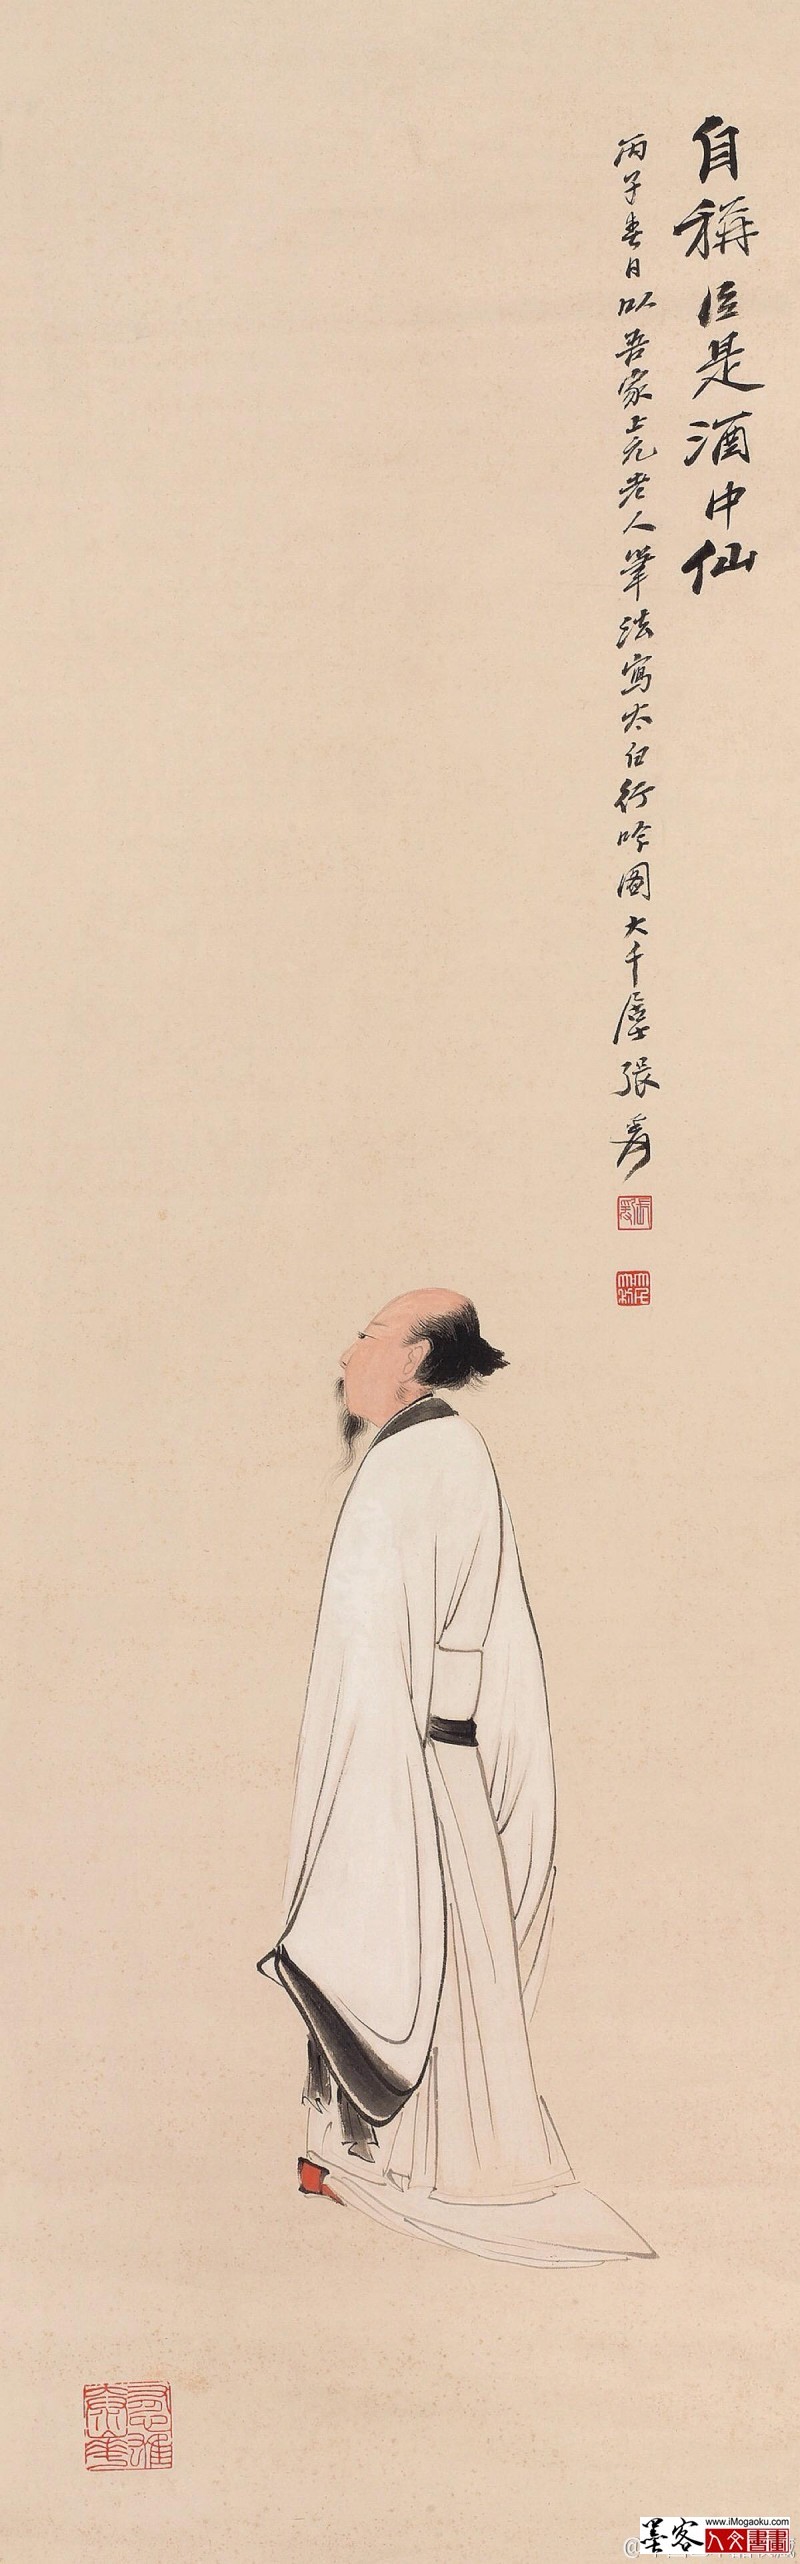 自稱臣是酒中仙
丙子春日以吾家上元老人筆法寫太白行吟圖大千居士張爰
張爰
大千
www.iMogaoku.com
墨客 人文書畫